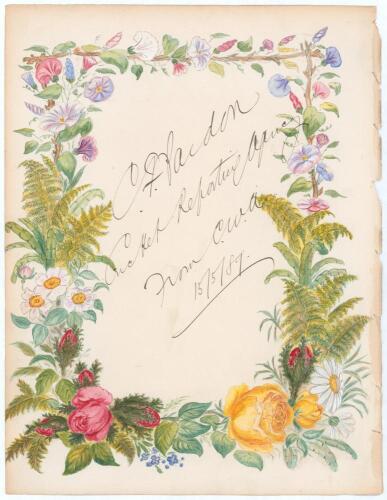 C. F. Pardon
Cricket Reporting Agency
From C.W.A.
15/5/89.